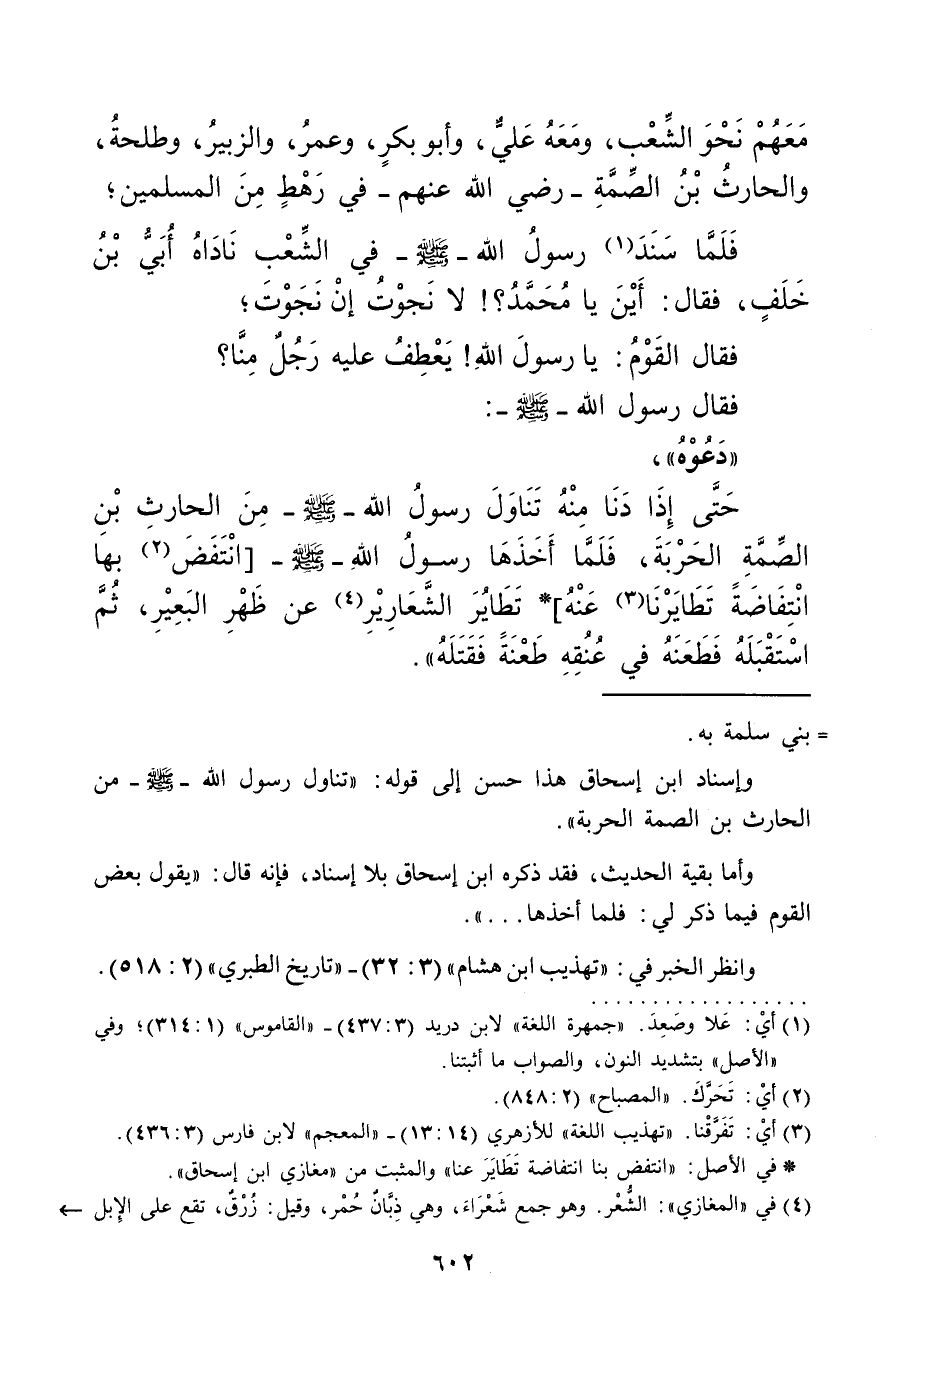 مَعَهُمْ نَحْوَ الشِّعْبِ، ومَعَهُ عَليٌّ، وأبو بكرٍ، وعمرُ، والزبيرُ، وطلحةُ،
والحارثُ بْنُ الصِّمَّةِ ـ رضي الله عنهم ـ في رَهْطٍ مِنَ المسلمين؛
فَلَمَّا سَنَدَ(١) رسولُ الله ـ ﷺ ـ في الشِّعْبِ نَادَاهُ أُبَيُّ بْنُ
خَلَفٍ، فقال: أَيْنَ يا مُحَمَّدُ؟! لا نَجوْتُ إنْ نَجَوْتَ؛
فقال القَوْمُ: يا رسولَ اللهِ! يَعْطِفُ عليه رَجُلٌ مِنَّا؟
فقال رسول الله ـ ﷺ ـ:
«دَعُوْهُ»،
حَتَّى إِذَا دَنَا مِنْهُ تَنَاوَلَ رسولُ الله ـ ﷺ ـ مِنَ الحارثِ بْنِ
الصِّمَّةِ الحَرْبَةَ، فَلَمَّا أَخَذَهَا رسولُ اللهِ ـ ﷺ ـ [انْتَفَضَ(٢) بها
انْتِفَاضَةً تَطَايَرْنَا(٣) عَنْهُ]* تَطَايُرَ الشَّعَارِيْرِ(٤) عن ظَهْرِ البَعِيْرِ، ثُمَّ
اسْتَقْبَلَهُ فَطَعَنَهُ في عُنُقِهِ طَعْنَةً فَقَتَلَهُ».
= بني سلمة به.
وإسناد ابن إسحاق هذا حسن إلى قوله: «تناول رسول الله ـ ﷺ ـ من
الحارث بن الصمة الحربة».
وأما بقية الحديث، فقد ذكره ابن إسحاق بلا إسناد، فإنه قال: «يقول بعض
القوم فيما ذكر لي: فلما أخذها...».
وانظر الخبر في: «تهذيب ابن هشام» (٣: ٣٢) ـ «تاريخ الطبري» (٢: ٥١٨).
(١) أيْ: عَلا وصَعِدَ. «جمهرة اللغة» لابن دريد (٣: ٤٣٧) ـ «القاموس» (١: ٣١٤)؛ وفي
«الأصل» بتشديد النون، والصواب ما أثبتنا.
(٢) أيْ: تَحَرَّكَ. «المصباح» (٢: ٨٤٨).
(٣) أيْ: تَفَرَّقْنا. «تهذيب اللغة» للأزهري (١٤: ١٣) ـ «المعجم» لابن فارس (٣: ٤٣٦).
* في الأصل: «انتفض بنا انتفاضة تَطَايَرَ عنا» والمثبت من «مغازي ابن إسحاق».
(٤) في «المغازي»: الشُّعْر. وهو جمع شَعْرَاءَ، وهي ذِبَّانٌ حُمْر، وقيل: زُرْقٌ، تقع على الإبل ←
٦٠٢